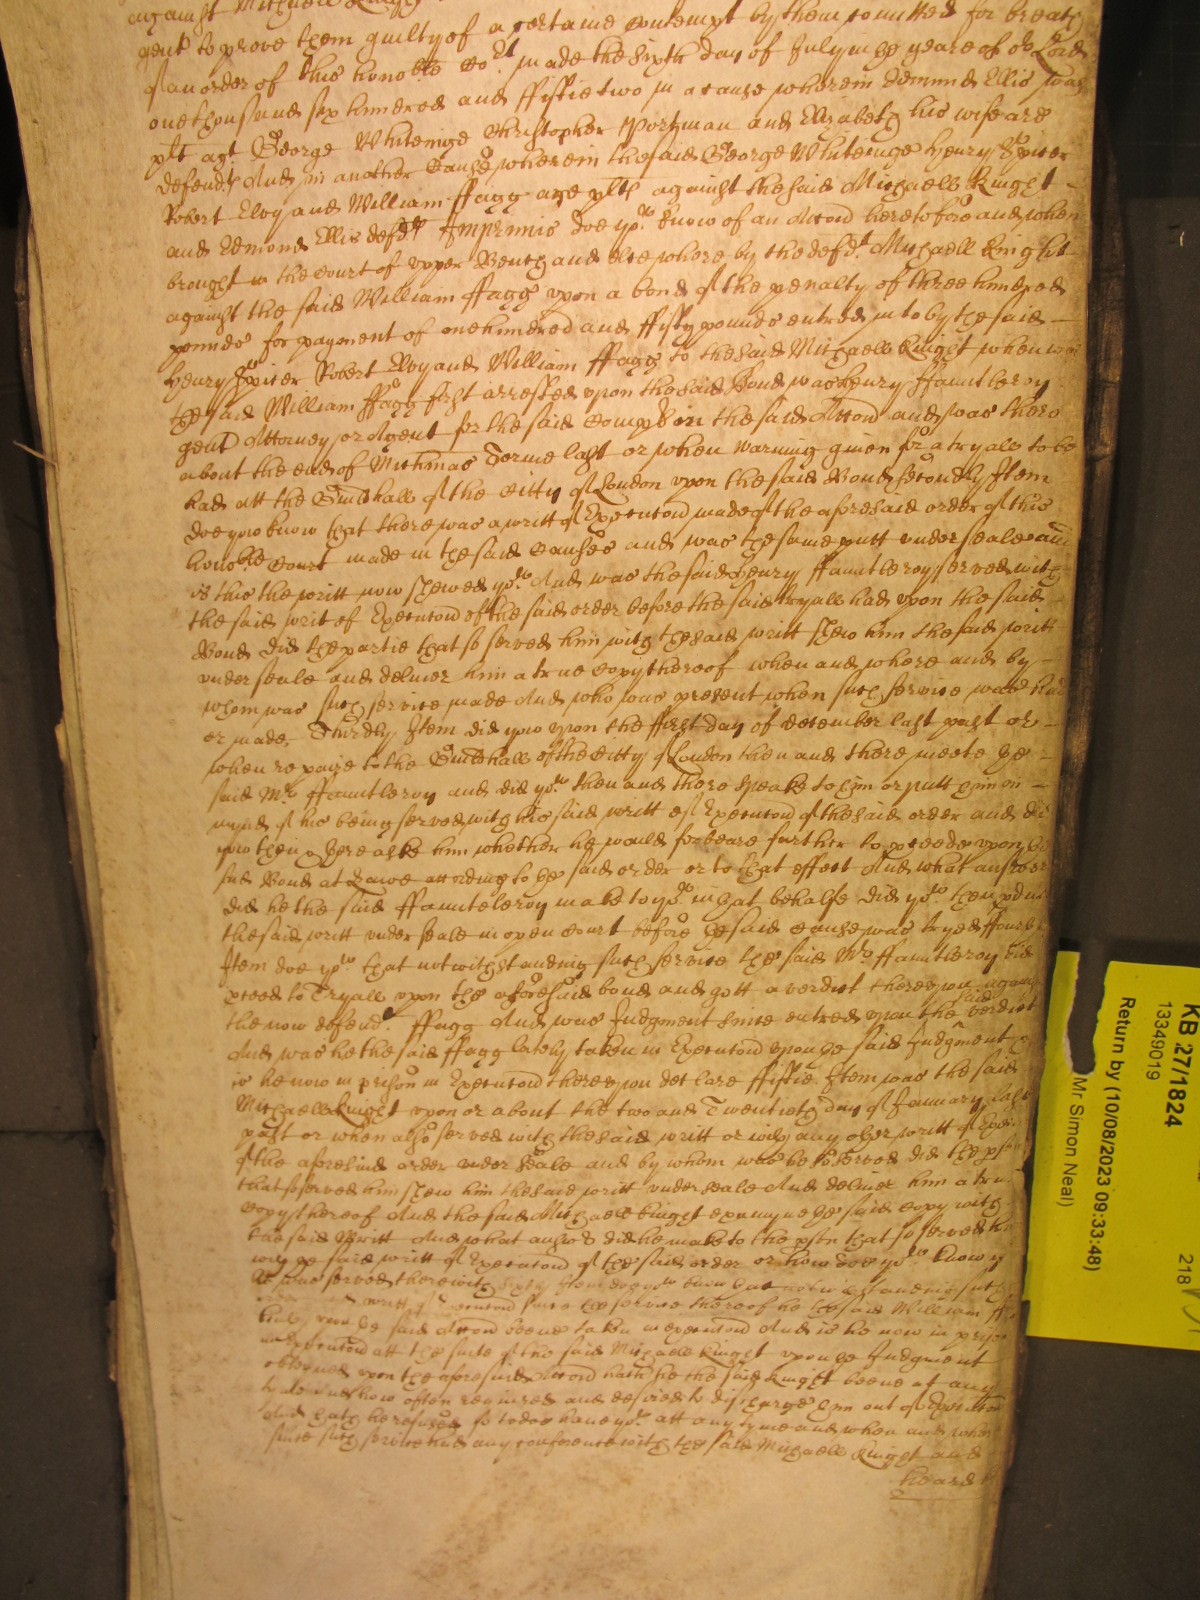 against Michaell Knight
gent to prove them guilty of a certaine contempt by them comitted for breach
of an order of this hono:ble Cort made the sixth day of July in ye yeare of or Lord
one thousand six hundred and ffiftie two in a cause wherein Edmund Ellis was
plt agt George Whiteinge Christopher Portman and Elizabeth his wife are
defendts And in another Cause wherein the said George Whiteinge Henry Spicer
Robert Eloy and William ffagg are plts against the said Michaell Knight
and Edmond Ellis defdts Imprimis doe yow know of an Accon heretofore and when
brought in the Court of vpper Bench and elce where by the defdt Michaell Knight
against the said William ffagg vpon a bond of the penalty of three hundred
pounds for payment of one hundred and ffifty pounds entred into by the said
Henry Spicer Robert Eloy and William ffagg to the said Michaell Knight when was
the said William ffagg first arrested vpon the said Bond was Henry ffauntleroy
gent Attorney or Agent for the said complt in the said Accon and was there
about the end of Michmas Terme last or when warning given for a tryall to be
had att the Guildhall of the Citty of London vpon the said Bond Secondly Item
doe yow know that there was a writt of Execucon made of the aforesaid order of this
hono:ble Court made in the said Causes and was the same putt vnder seale and
is this the writt now shewed yow And was the said Henry ffauntleroy served with
the said writ of Execucon of the said order before the said tryall had vpon the said
Bond did the partie that so served him with the said writt shew him the said writt
vnder seale and deliver him a true copy thereof when and where and by
whom was such service made And who was present when such service was had
or made. Thirdly Item did yow vpon the ffirst day of december last past or
when repaire to the Guildhall of the Citty of London then and there meete ye
said Mr ffauntleroy and did yow then and there speake to him or putt him in
mynd of his being served with his said writt of Execucon of the said order and did
yow then & there aske him whether he would forbeare further to proceede vpon ye
said Bond at Lawe according to ye said order or to that effect And what answer
did he the said ffaunteleroy make to yow in that behalfe did yow then
the said writt vnder seale in open Court before ye said cause was tryed
Item doe yow that notwithstanding such service the said Mr ffauntleroy did
proceed to Tryall vpon the aforesaid bond and gott a verdict therevpon against
the now defendt ffagg And was Judgment since entred vpon the said verdict
And was he the said ffagg lately taken in Execucon vpon ye said Judgment &
is he now in prison in Execucon therevpon declare ffiftie Item was the said
Michaell Knight vpon or about the two and Twentieth day of January last
past or when also served with the said writt or with any other writt of
of the aforesaid order vnder seale and by whom was he so served did the
that so served him shew him the said writt vnder seale And deliver him a true
copy thereof And the said Michaell Knight examyne ye said copy with
the said Writt And what answer did he make to the psón that so served him
with ye said writt of Execucon of the said order or how doe yow know
he was served therewith Item doe yow know that notwithstanding such
writt of Execucon since the service thereof he the said William
vpon ye said Accon beene taken in execucon And is he now in prison
in Execucon att the suite of the said Michaell Knight vpon ye Judgment
obteyned vpon the aforesaid Accon hath he the said Knight beene at any
tyme and how often required and desired to discharge him out of Execucon
And hath he refused so to doe have yow att any tyme and when and where
since such service had any conference with the said Michaell Knight and
heard
KB 27/1824
13349019
Return by (10/08/2023 09:33:48)
Mr Simon Neal)
218